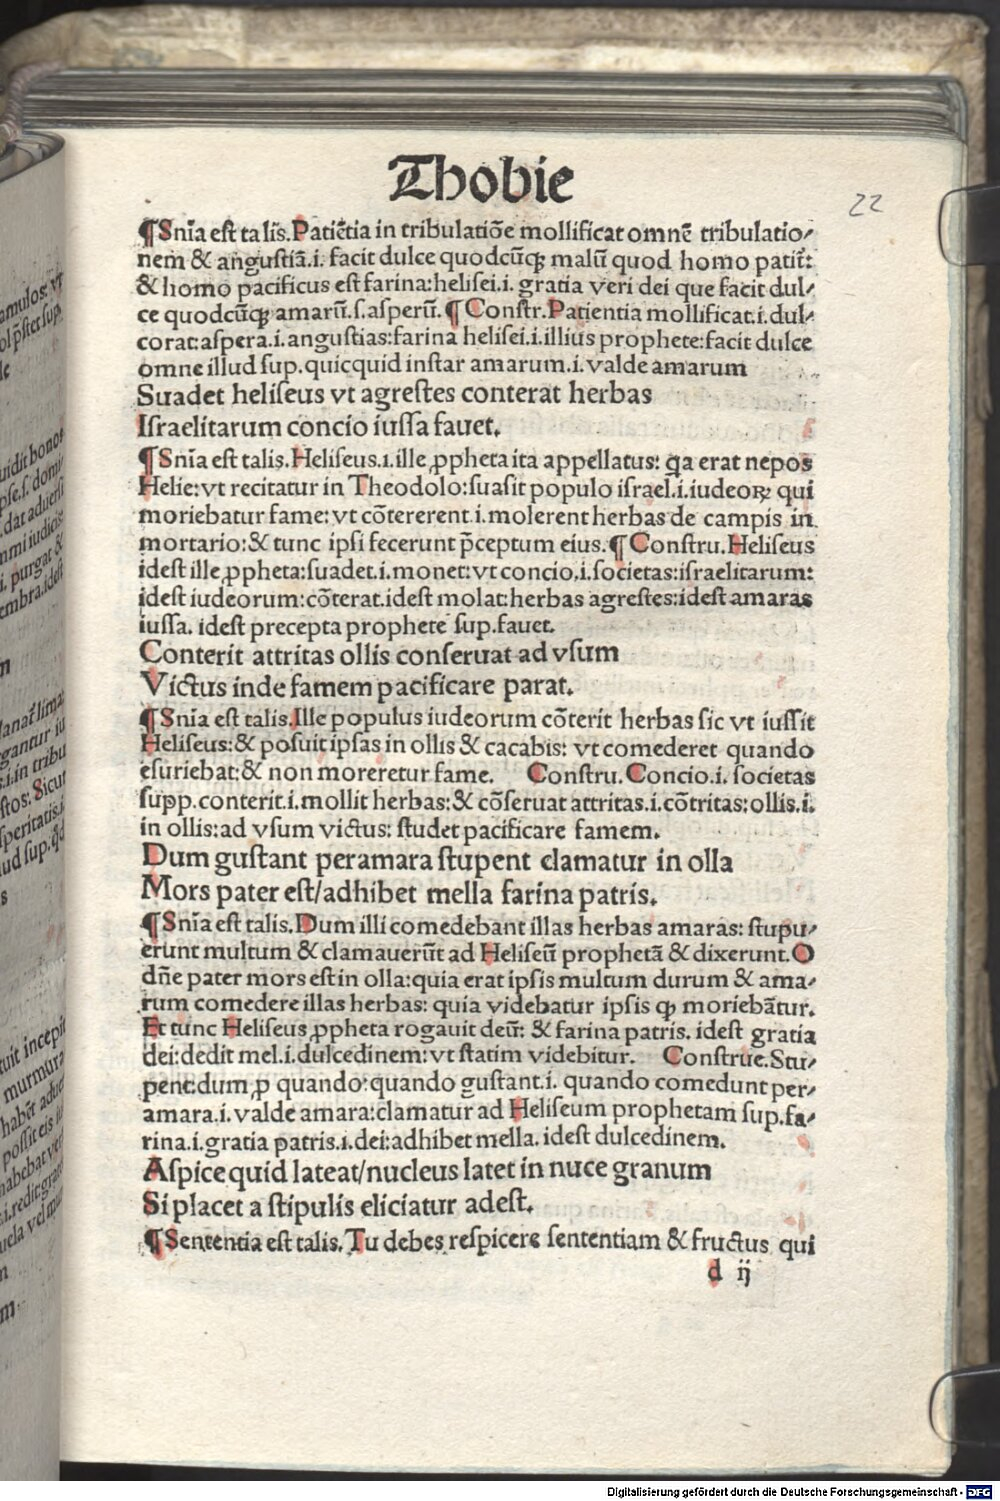 Thobie
22
¶Snīa est talis.Patiētia in tribulatiōe mollificat omnē tribulatio⸗
nem & angustiā.i. facit dulce quodcūqꝫ malū quod homo patiť:
& homo pacificus est farina:helisei.i. gratia veri dei que facit dul⸗
ce quodcūqꝫ amarū.ſ.asperū.¶ Constr.Patientia mollificat.i.dul⸗
corat:aspera.i.angustias:farina helisei.i.illius prophete:facit dulce
omne illud sup.quicquid instar amarum.i.valde amarum
Suadet heliseus vt agrestes conterat herbas
Israelitarum concio iussa fauet.
¶Snīa est talis.Heliseus.i.ille ꝓpheta ita appellatus: q̄a erat nepos
Helie:vt recitatur in Theodolo:suasit populo israel.i.iudeoꝝ qui
moriebatur fame:vt cōtererent.i.molerent herbas de campis in
mortario:& tunc ipsi fecerunt p̄ceptum eius.¶ Constru.Heliseus
idest ille ꝓpheta:suadet.i.monet:vt concio.i.societas:israelitarum:
idest iudeorum:cōterat.idest molat:herbas agrestes:idest amaras
iussa. idest precepta prophete sup.fauet.
Conterit attritas ollis conseruat ad vsum
Victus inde famem pacificare parat.
¶Snīa est talis.Ille populus iudeorum cōterit herbas sic vt iussit
Heliseus:& posuit ipsas in ollis & cacabis: vt comederet quando
esuriebat:& non moreretur fame. Constru.Concio.i. societas
supp.conterit.i.mollit herbas:& cōseruat attritas.i.cōtritas:ollis.i.
in ollis:ad vsum victus: studet pacificare famem.
Dum gustant peramara stupent clamatur in olla
Mors pater est/adhibet mella farina patris.
¶Snīa est talis.Dum illi comedebant illas herbas amaras: stupu⸗
erunt multum & clamauerūt ad Heliseū prophetā & dixerunt.O
dn̄e pater mors est in olla:quia erat ipsis multum durum & ama⸗
rum comedere illas herbas: quia videbatur ipsis qꝫ moriebātur.
Et tunc Heliseus ꝓpheta rogauit deū: & farina patris. idest gratia
dei:dedit mel.i.dulcedinem:vt statim videbitur. Construe.Stu⸗
pent:dum ꝓ quando:quando gustant.i. quando comedunt per⸗
amara.i.valde amara:clamatur ad Heliseum prophetam sup.fa⸗
rina.i.gratia patris.i.dei:adhibet mella. idest dulcedinem.
Aspice quid lateat/nucleus latet in nuce granum
Si placet a stipulis eliciatur adest.
¶Sentenția est talis.Tu debes respicere sententiam & fructus qui
d ij
Digitalisierung gefördert durch die Deutsche Forschungsgemeinschaft - DFG